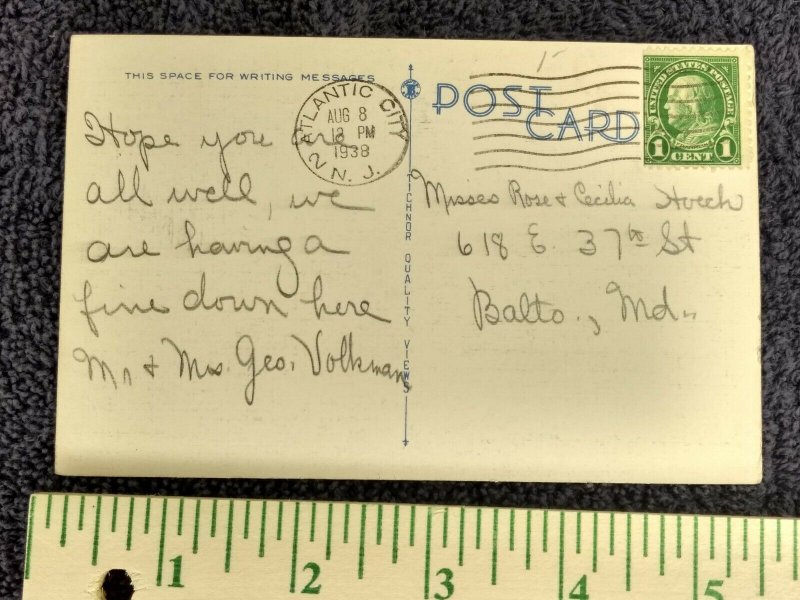 THIS SPACE FOR WRITING MESSAGES
Hope you are
all well, we
are having a
fine down here
Mr & Mrs. Geo. Volkman
ATLANTIC CITY
AUG 8
12 PM
1938
2 N. J.
QUALITY VIEWS
POST
CARD
UNITED STATES POSTAGE
FRANKLIN
1 CENT 1
Misses Rose & Cecilia
618 E. 37th St
Balto., Md.
1 2 3 4 5